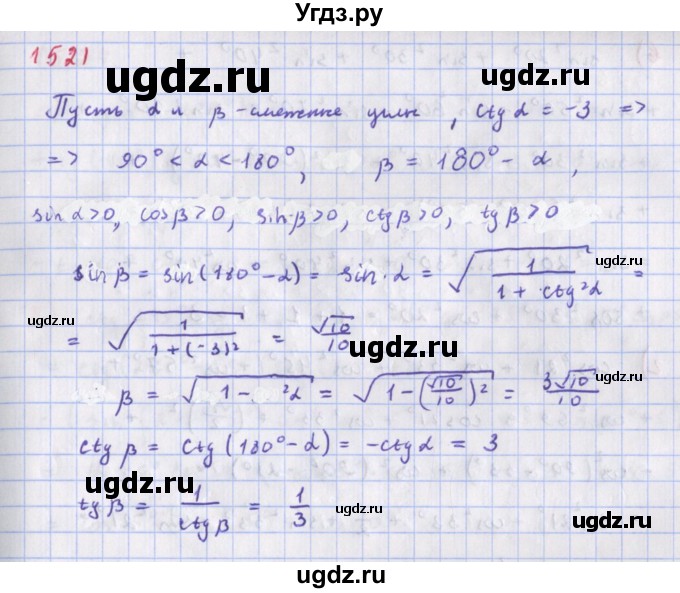 Угдз.ру
1521
ugdz.ru
Пусть α и β - смежные углы, ctg α = -3 =>
=> 90° < α < 180°, β = 180° - α,
sin α > 0, cos β > 0, sin β > 0, ctg β > 0, tg β > 0
ugdz.ru ugdz.ru
sin β = sin(180° - α) = sin α = √(1/(1 + ctg²α)) =
ugdz.ru
ugdz.ru
= √(1/(1+(-3)²)) = √10/10
ugdz.ru
β = √(1 - ²α) = √(1 - (√10/10)²) = 3√10/10
ugdz.ru
ctg β = ctg(180° - α) = -ctg α = 3
ugdz.ru
tg β = 1/ctg β = 1/3
ugdz.ru
ugdz.ru
ugdz.ru